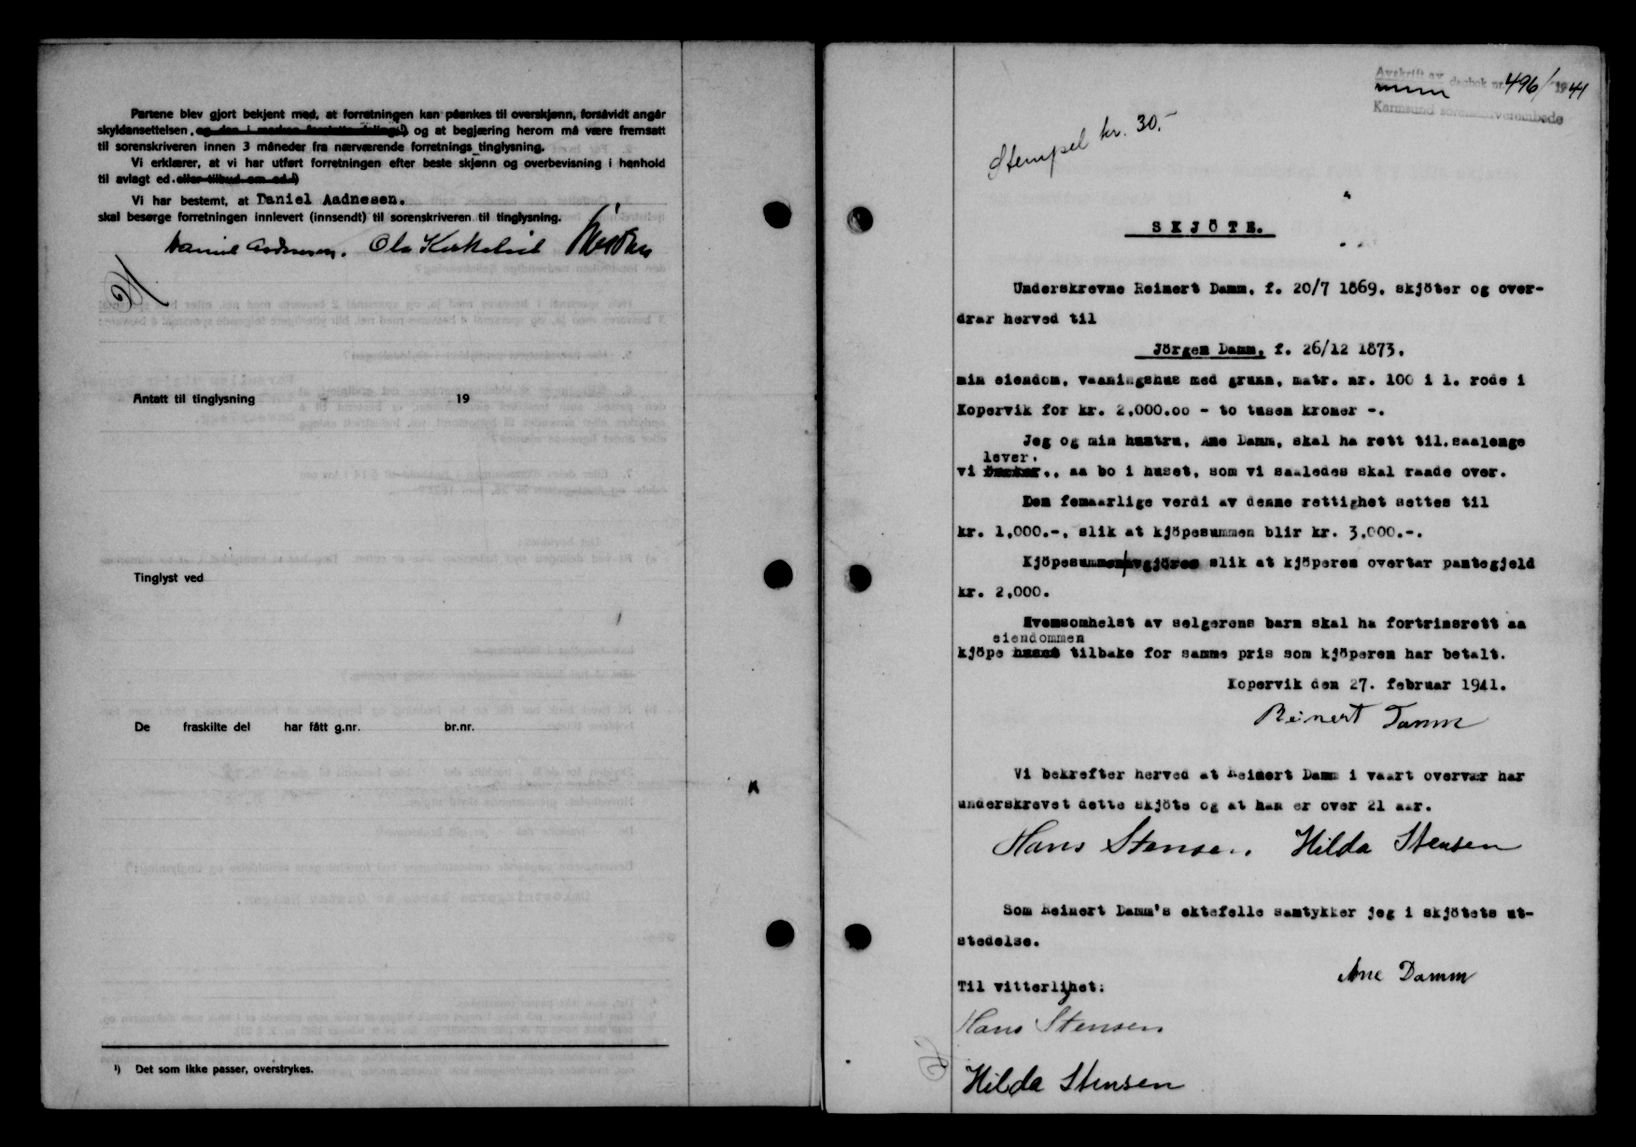 Partene blev gjort bekjent med, at forretningen kan påankes til overskjønn, forsåvidt angår
skyldansettelsen, og den i marken foretatte deling,¹) og at begjæring herom må være fremsatt
til sorenskriveren innen 3 måneder fra nærværende forretnings tinglysning.
Vi erklærer, at vi har utført forretningen efter beste skjønn og overbevisning i henhold
til avlagt ed. eller tilbud om ed.¹)
Vi har bestemt, at Daniel Aadnesen.
skal besørge forretningen innlevert (innsendt) til sorenskriveren til tinglysning.
Daniel Aadnesen. Ola Kirkeleit
Antatt til tinglysning 19
Tinglyst ved
De fraskilte del har fått g.nr. br.nr.
¹) Det som ikke passer, overstrykes.
Avskrift av dagbok nr. 496/1941
Karmsund sorenskriverembede
Stempel kr. 30.-
SKJÖTE.
Underskrevne Reinert Damm, f. 20/7 1869, skjöter og over-
drar herved til
Jörgen Damm, f. 26/12 1873,
min eiendom, vaaningshus med grunn, matr. nr. 100 i 1. rode i
Kopervik for kr. 2,000.oo - to tusen kroner -.
Jeg og min hustru, Ane Damm, skal ha rett til, saalenge
lever,
vi önsker, aa bo i huset, som vi saaledes skal raade over.
Den femaarlige verdi av denne rettighet settes til
kr. 1,000.-, slik at kjöpesummen blir kr. 3,000.-.
Kjöpesummen avgjöres slik at kjöperen overtar pantegjeld
kr. 2,000.
Hvemsomhelst av selgerens barn skal ha fortrinsrett aa
eiendommen
kjöpe huset tilbake for samme pris som kjöperen har betalt.
Kopervik den 27. februar 1941.
Reinert Damm
Vi bekrefter herved at Reinert Damm i vaart overvær har
underskrevet dette skjöte og at han er over 21 aar.
Hans Stensen. Hilda Stensen
Som Reinert Damm's ektefelle samtykker jeg i skjötets ut-
stedelse.
Ane Damm
Til vitterlighet:
Hans Stensen
Hilda Stensen